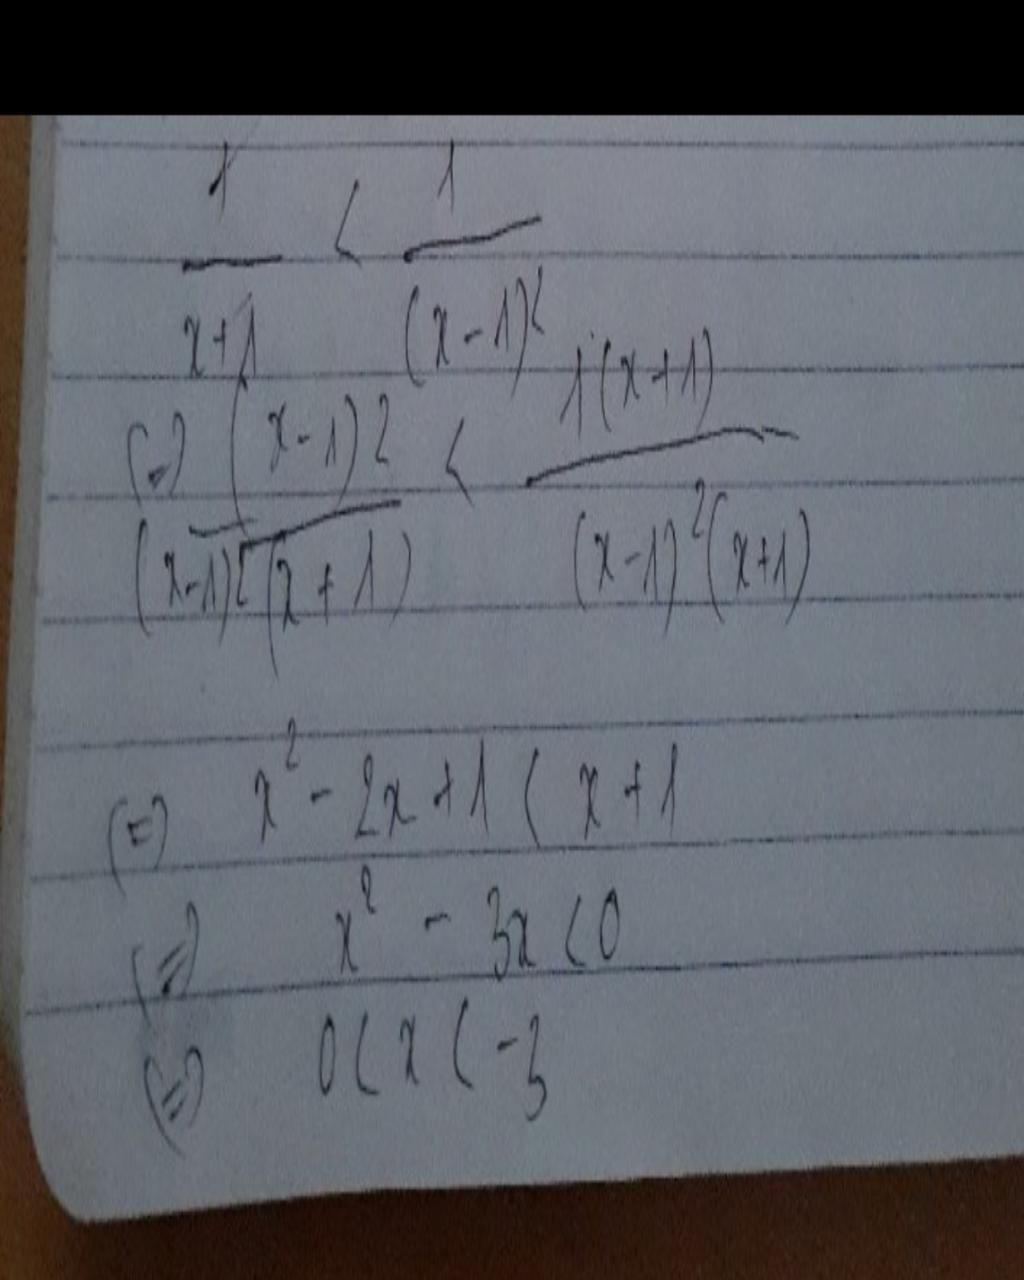 1/(x+1) < 1/(x-1)²
(=) (x-1)²/((x-1)²(x+1)) < 1(x+1)/((x-1)²(x+1))
(=) x² - 2x + 1 < x + 1
(=) x² - 3x < 0
(=) 0 < x < -3